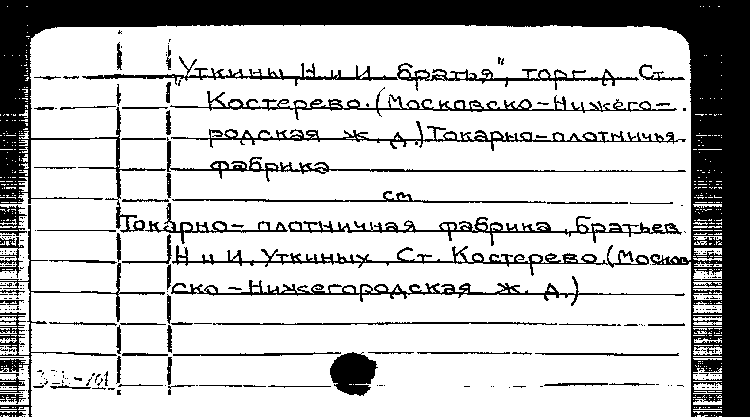 „Уткины, Н и И. братья", торг. д. Ст.
Костерево. (Московско-Нижего-
родская ж. д.) Токарно-плотничья
фабрика
см
Токарно-плотничная фабрика „Братьев
Н и И. Уткиных. Ст. Костерево. (Москов
ско-Нижегородская ж. д.)